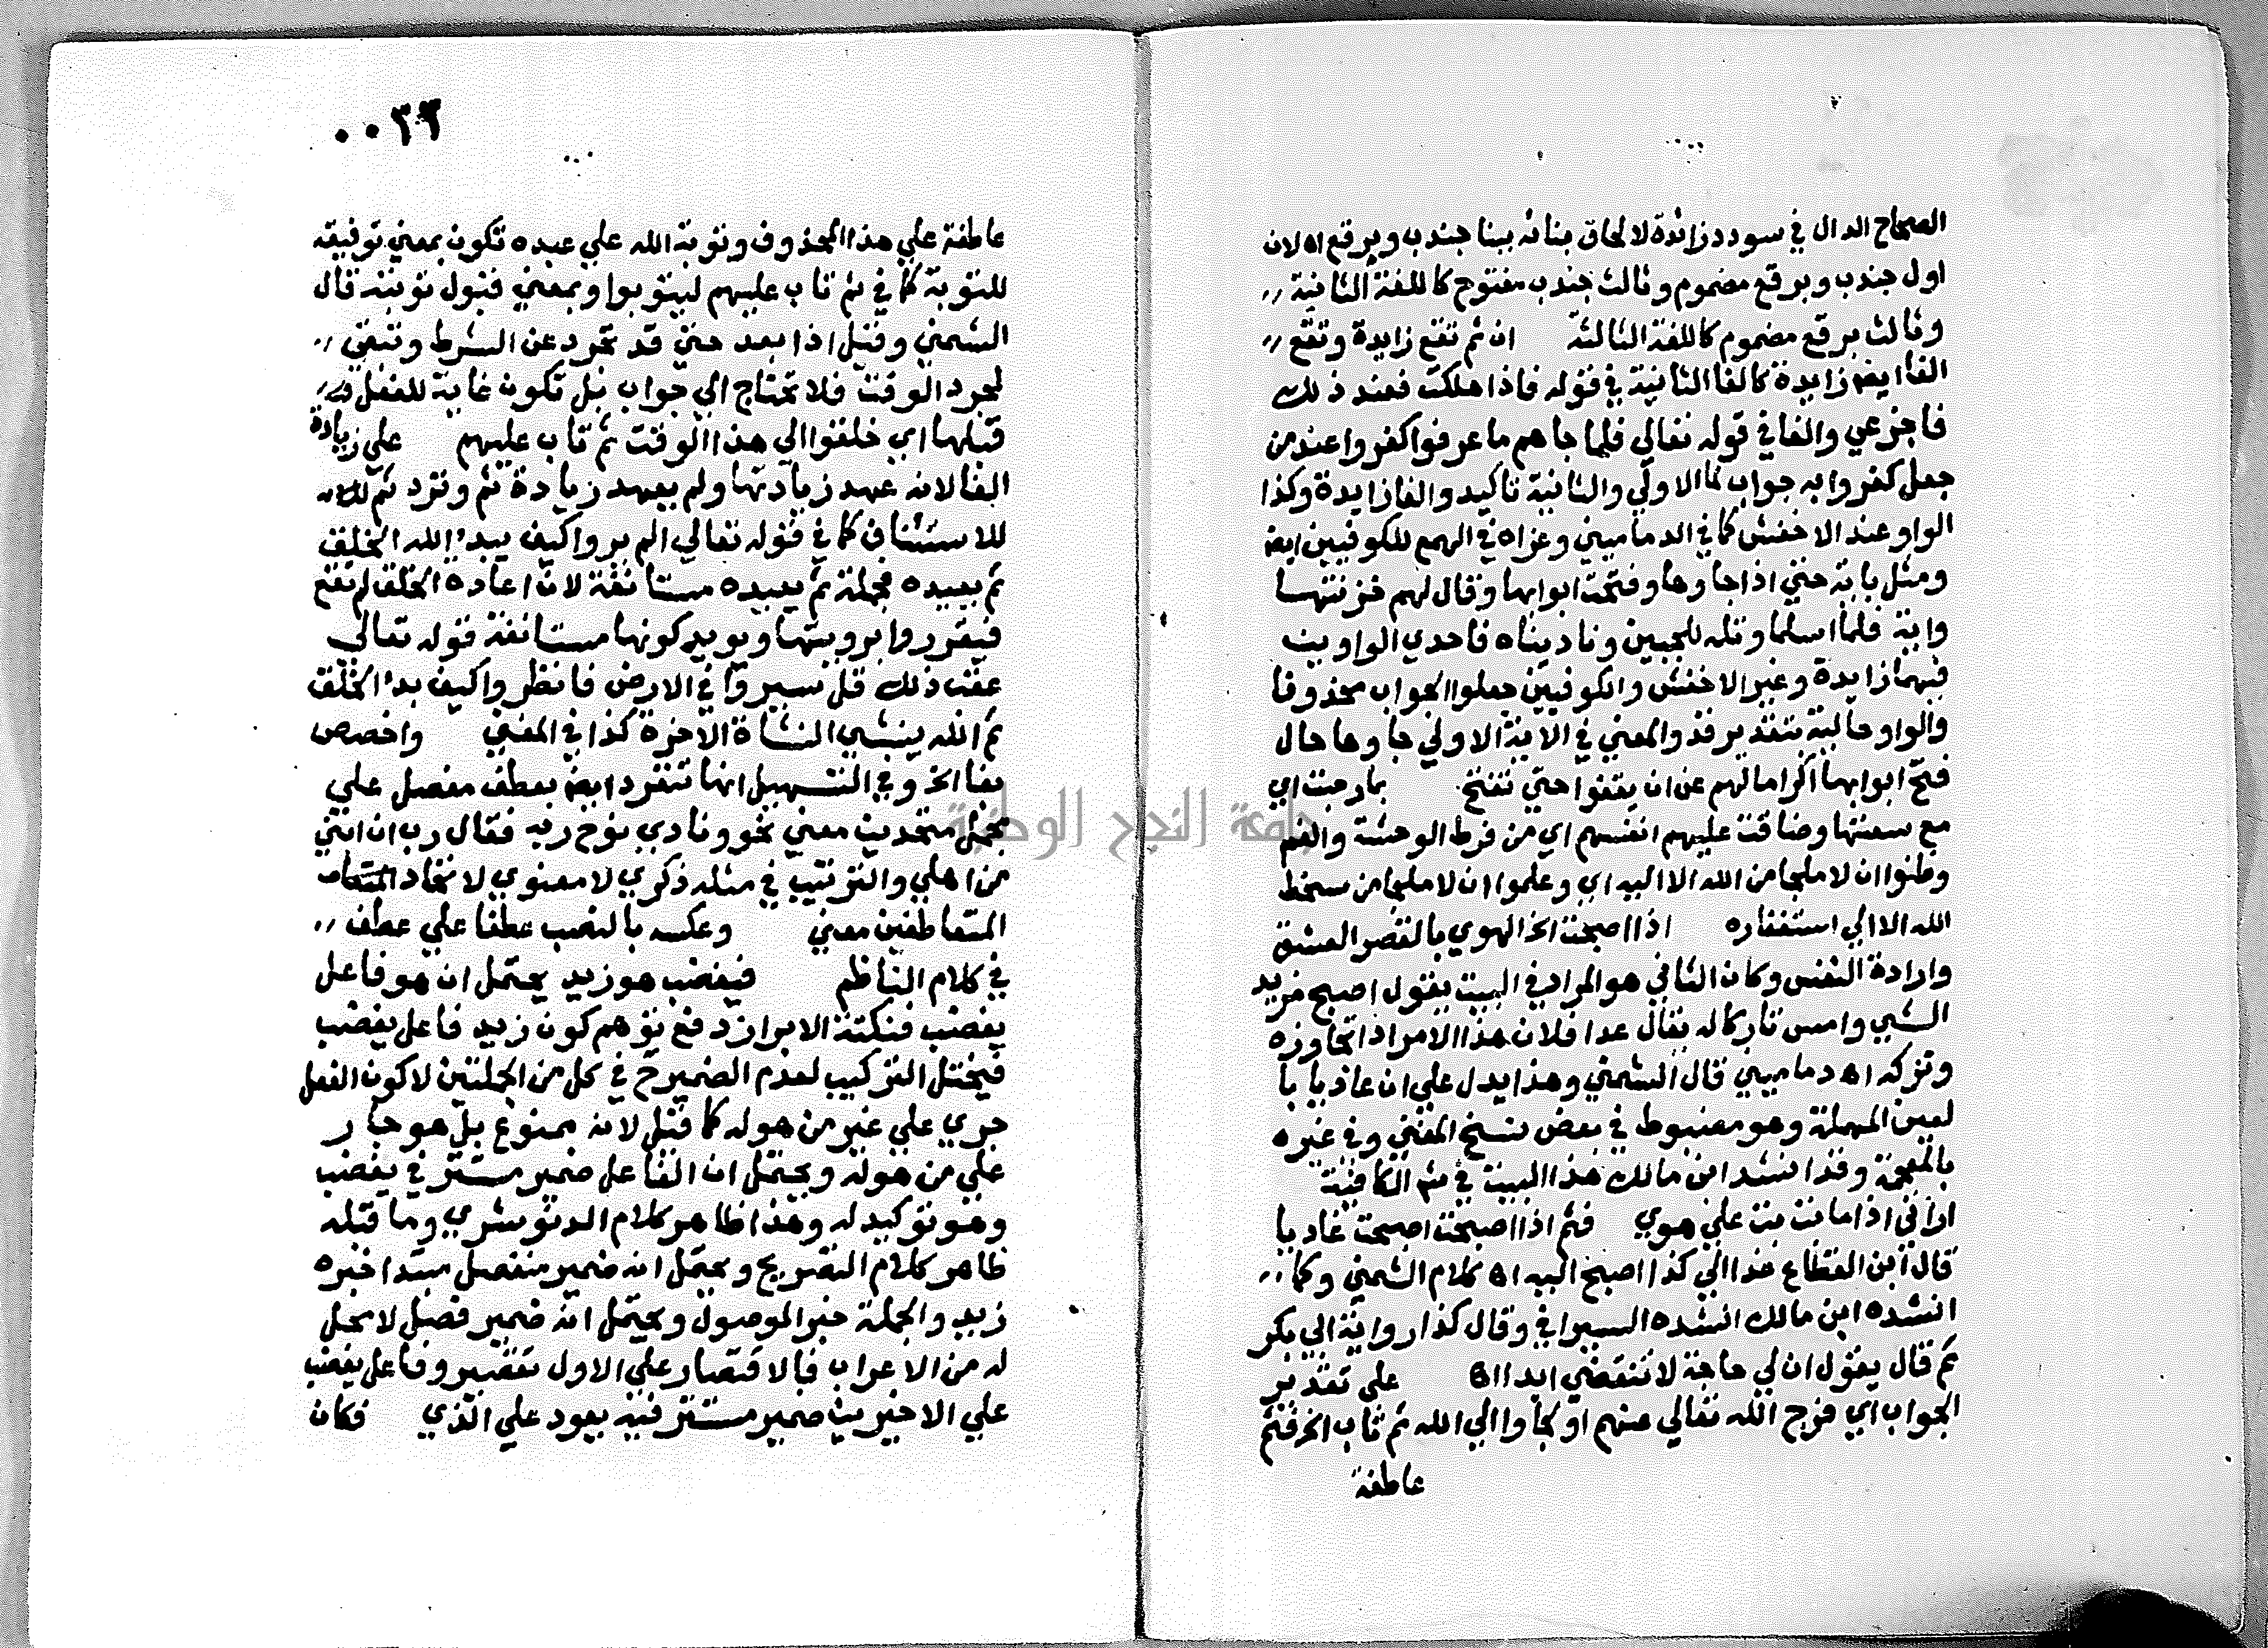 الصحاح الدال في سودد زائدة لالحاق بنائه ببنا جندب وبرقع اه لان
اول جندب وبرقع مضموم وثالث جندب مفتوح كاللغة الثانية
وثالث برقع مضموم كاللغة الثالثة ان ثم تقع زايدة وتقع
الفا ايض زايدة كالفا الثانية في قوله فاذا هلكت فعند ذلك
فاجزعي والفا في قوله تعالي فلما جاهم ما عرفوا كفروا عند من
جعل كفروا به جواب لما الاولي والثانية تاكيد والفا زايدة وكذا
الواو عند الاخفش كما في الدماميني وعزاه في الهمع للكوفيين ايض
ومثل باية حتي اذا جاوها وفتحت ابوابها وقال لهم خزنتها
واية فلما اسلما وتله للجبين وناديناه فاحدي الواوين
فيهما زايدة وغير الاخفش والكوفيين جعلوا الجواب محذوفا
والواو حالية بتقدير قد والمعني في الاية الاولي جاوها حال
فتح ابوابها اكراما لهم عن ان يقفوا حتي تفتح بما رحبت اي
مع سعتها وضاقت عليهم انفسهم اي من فرط الوحشة والغم
وظنوا ان لا ملجا من الله الا اليه اي وعلموا ان لا ملجا من سخط
الله الا الي استغفاره اذا اصبحت الخ الهوي بالقصر العشق
وارادة النفس وكان الثاني هو المراد في البيت يقول اصبح مريد
الشي وامس تاركا له يقال عدا فلان هذا الامر اذا تجاوزه
وتركه اه دماميني قال الشمني وهذا يدل علي ان عاديا با
لعين المهملة وهو مضبوط في بعض نسخ المغني وفي غيره
بالمعجمة وقد انشد ابن مالك هذا البيت في شر الكافية
اراني اذا ما بت بت علي هوي فثم اذا اصبحت اصبحت غاديا
قال ابن القطاع غدا الي كذا اصبح اليه اه كلام الشمني وكما
انشده ابن مالك انشده السيرافي وقال كذا رواية ابي بكر
ثم قال يقول ان لي حاجة لا تنقضي ابدا اه علي تقدير
الجواب اي فرج الله تعالي عنهم او لجاوا الي الله ثم تاب الخ فثم
عاطفة
٠٠٣٢
عاطفة علي هذا المحذوف وتوبة الله علي عبده تكون بمعني توفيقه
للتوبة كما في ثم تاب عليهم ليتوبوا وبمعني قبول توبته قال
الشمني وقيل اذا بعد حتي قد تجرد عن الشرط وتبقي
لمجرد الوقت فلا تحتاج الي جواب بل تكون غاية للفعل
قبلها اي خلفوا الي هذا الوقت ثم تاب عليهم علي زيادة
الفا لانه عهد زيادتها ولم يعهد زيادة ثم وترد ثم
للاستئناف كما في قوله تعالي الم يروا كيف يبدء الله الخلق
ثم يعيده فجملة ثم يعيده مستانفة لان اعادة الخلق لم تقع
فيقرروا برويتها ويويد كونها مستانفة قوله تعالى
عقب ذلك قل سيروا في الارض فانظروا كيف بدء الخلق
ثم الله ينشي النشاة الاخرة كذا في المغني واخصص
بفا الخ وفي التسهيل انها تنفرد ايض بعطف مفصل علي
مجمل متحدين معني نحو ونادي نوح ربه فقال رب ان ابني
من اهلي والترتيب في مثله ذكري لا معنوي لاتحاد
المتعاطفين معني وعكسه بالنصب عطفا علي عطف
في كلام الناظم فيغضب هو زيد يحتمل ان هو فاعل
يغضب فنكتة الابراز دفع توهم كون زيد فاعل يغضب
فيختل التركيب لعدم الضمير ح في كل من الجملتين لا كون الفعل
جري علي غير من هو له كما قيل لانه ممنوع بل هو جار
علي من هو له ويحتمل ان الفاعل ضمير مستتر في يغضب
وهو توكيد له وهذا ظاهر كلام الدنوشري وما قبله
ظاهر كلام التصريح ويحتمل انه ضمير منفصل مبتدا خبره
زيد والجملة خبر الموصول ويحتمل انه ضمير فصل لا محل
له من الاعراب فالاقتصار علي الاول تقصير وفاعل يغضب
علي الاخيرين ضمير مستتر فيه يعود علي الذي فكان
جامعة النجاح الوطنية